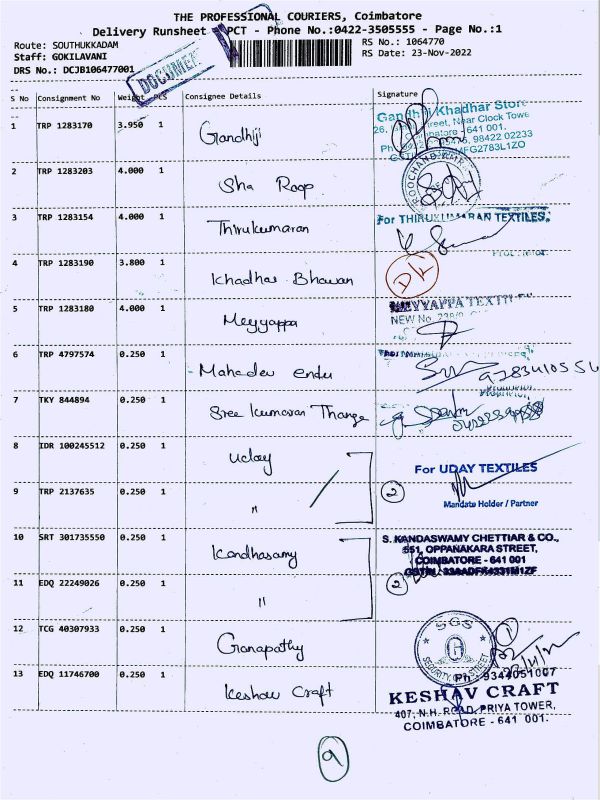 THE PROFESSIONAL COURIERS, Coimbatore
Delivery Runsheet - PCT - Phone No.:0422-3505555 - Page No.:1
Route: SOUTHUKKADAM RS No.: 1064770
Staff: GOKILAVANI RS Date: 23-Nov-2022
DRS No.: DCJB106477001
DOCUMEN
S No Consignment No Weight PCS Consignee Details Signature
1 TRP 1283170 3.950 1 Gandhiji
Gandhiji Khadhar Store
26, Street, Near Clock Towe
- 641 001.
98422 02233
2 TRP 1283203 4.000 1 Sha Roop
3 TRP 1283154 4.000 1 Thirukumaran
For THIRUKUMARAN TEXTILES,
4 TRP 1283190 3.800 1 Khadhar Bhawan
D/L
5 TRP 1283180 4.000 1 Meyyappa
MEYYAPPA TEXTILE
NEW No.
6 TRP 4797574 0.250 1 Mahadev endu
7 TKY 844894 0.250 1 Sree Kumaran Thanga
8 IDR 100245512 0.250 1 Uday
For UDAY TEXTILES
9 TRP 2137635 0.250 1 "
2
Mandate Holder / Partner
10 SRT 301735550 0.250 1 Kandhasamy
S. KANDASWAMY CHETTIAR & CO.,
551, OPPANAKARA STREET,
COIMBATORE - 641 001
11 EDQ 22249026 0.250 1 "
2
12 TCG 40307933 0.250 1 Ganapathy
SGS
1
23/11/22
Ph : 9344051007
13 EDQ 11746700 0.250 1 Keshav Craft
KESHAV CRAFT
407, N.H. ROAD, PRIYA TOWER,
COIMBATORE - 641 001.
9